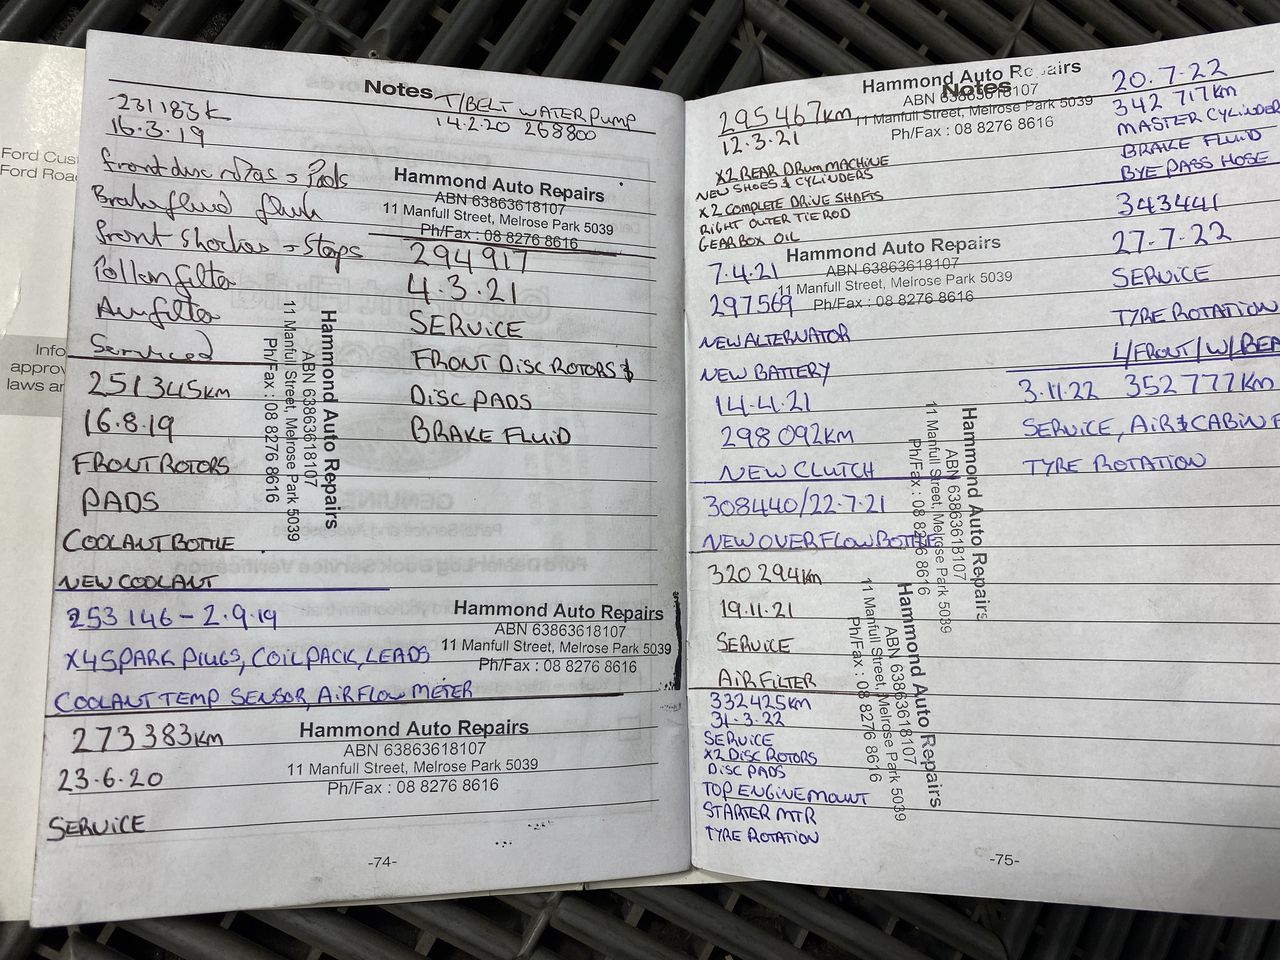 Ford Cus
Ford Roa
Info
approv
laws a
Notes
231183K
16.3.19
Front disc rotors = Pads
Brake fluid flush
front shocks = Stops
Pollen filter
Air filter
Serviced
251345KM
16.8.19
FRONT ROTORS
PADS
COOLANT BOTTLE
NEW COOLANT
Hammond Auto Repairs
ABN 63863618107
11 Manfull Street, Melrose Park 5039
Ph/Fax : 08 8276 8616
T/BELT WATER PUMP
14.2.20 268800
Hammond Auto Repairs
ABN 63863618107
11 Manfull Street, Melrose Park 5039
Ph/Fax : 08 8276 8616
294917
4.3.21
SERVICE
FRONT DISC ROTORS &
DISC PADS
BRAKE FLUID
253146 - 2.9.19
X4 SPARK PLUGS, COIL PACK, LEADS
COOLANT TEMP SENSOR, AIR FLOW METER
Hammond Auto Repairs
ABN 63863618107
11 Manfull Street, Melrose Park 5039
Ph/Fax : 08 8276 8616
273383KM
23.6.20
SERVICE
Hammond Auto Repairs
ABN 63863618107
11 Manfull Street, Melrose Park 5039
Ph/Fax : 08 8276 8616
-74-
Notes
Hammond Auto Repairs
ABN 63863618107
11 Manfull Street, Melrose Park 5039
Ph/Fax : 08 8276 8616
295467KM
12.3.21
X2 REAR DRUM MACHINE
NEW SHOES & CYLINDERS
X2 COMPLETE DRIVE SHAFTS
RIGHT OUTER TIE ROD
GEARBOX OIL
Hammond Auto Repairs
ABN 63863618107
11 Manfull Street, Melrose Park 5039
Ph/Fax : 08 8276 8616
7.4.21
297569
NEW ALTERNATOR
NEW BATTERY
14.4.21
298092KM
NEW CLUTCH
308440/22.7.21
NEW OVERFLOW BOTTLE
Hammond Auto Repairs
ABN 63863618107
11 Manfull Street, Melrose Park 5039
Ph/Fax : 08 8276 8616
320294KM
19.11.21
SERVICE
AIR FILTER
332425KM
31.3.22
SERVICE
X2 DISC ROTORS
DISC PADS
TOP ENGINE MOUNT
STARTER MTR
TYRE ROTATION
Hammond Auto Repairs
ABN 63863618107
11 Manfull Street, Melrose Park 5039
Ph/Fax : 08 8276 8616
20.7.22
342717KM
MASTER CYLINDER
BRAKE FLUID
BYE PASS HOSE
343441
27.7.22
SERVICE
TYRE ROTATION
L/FRONT/W/BEA
3.11.22 352777KM
SERVICE, AIR & CABIN F
TYRE ROTATION
-75-